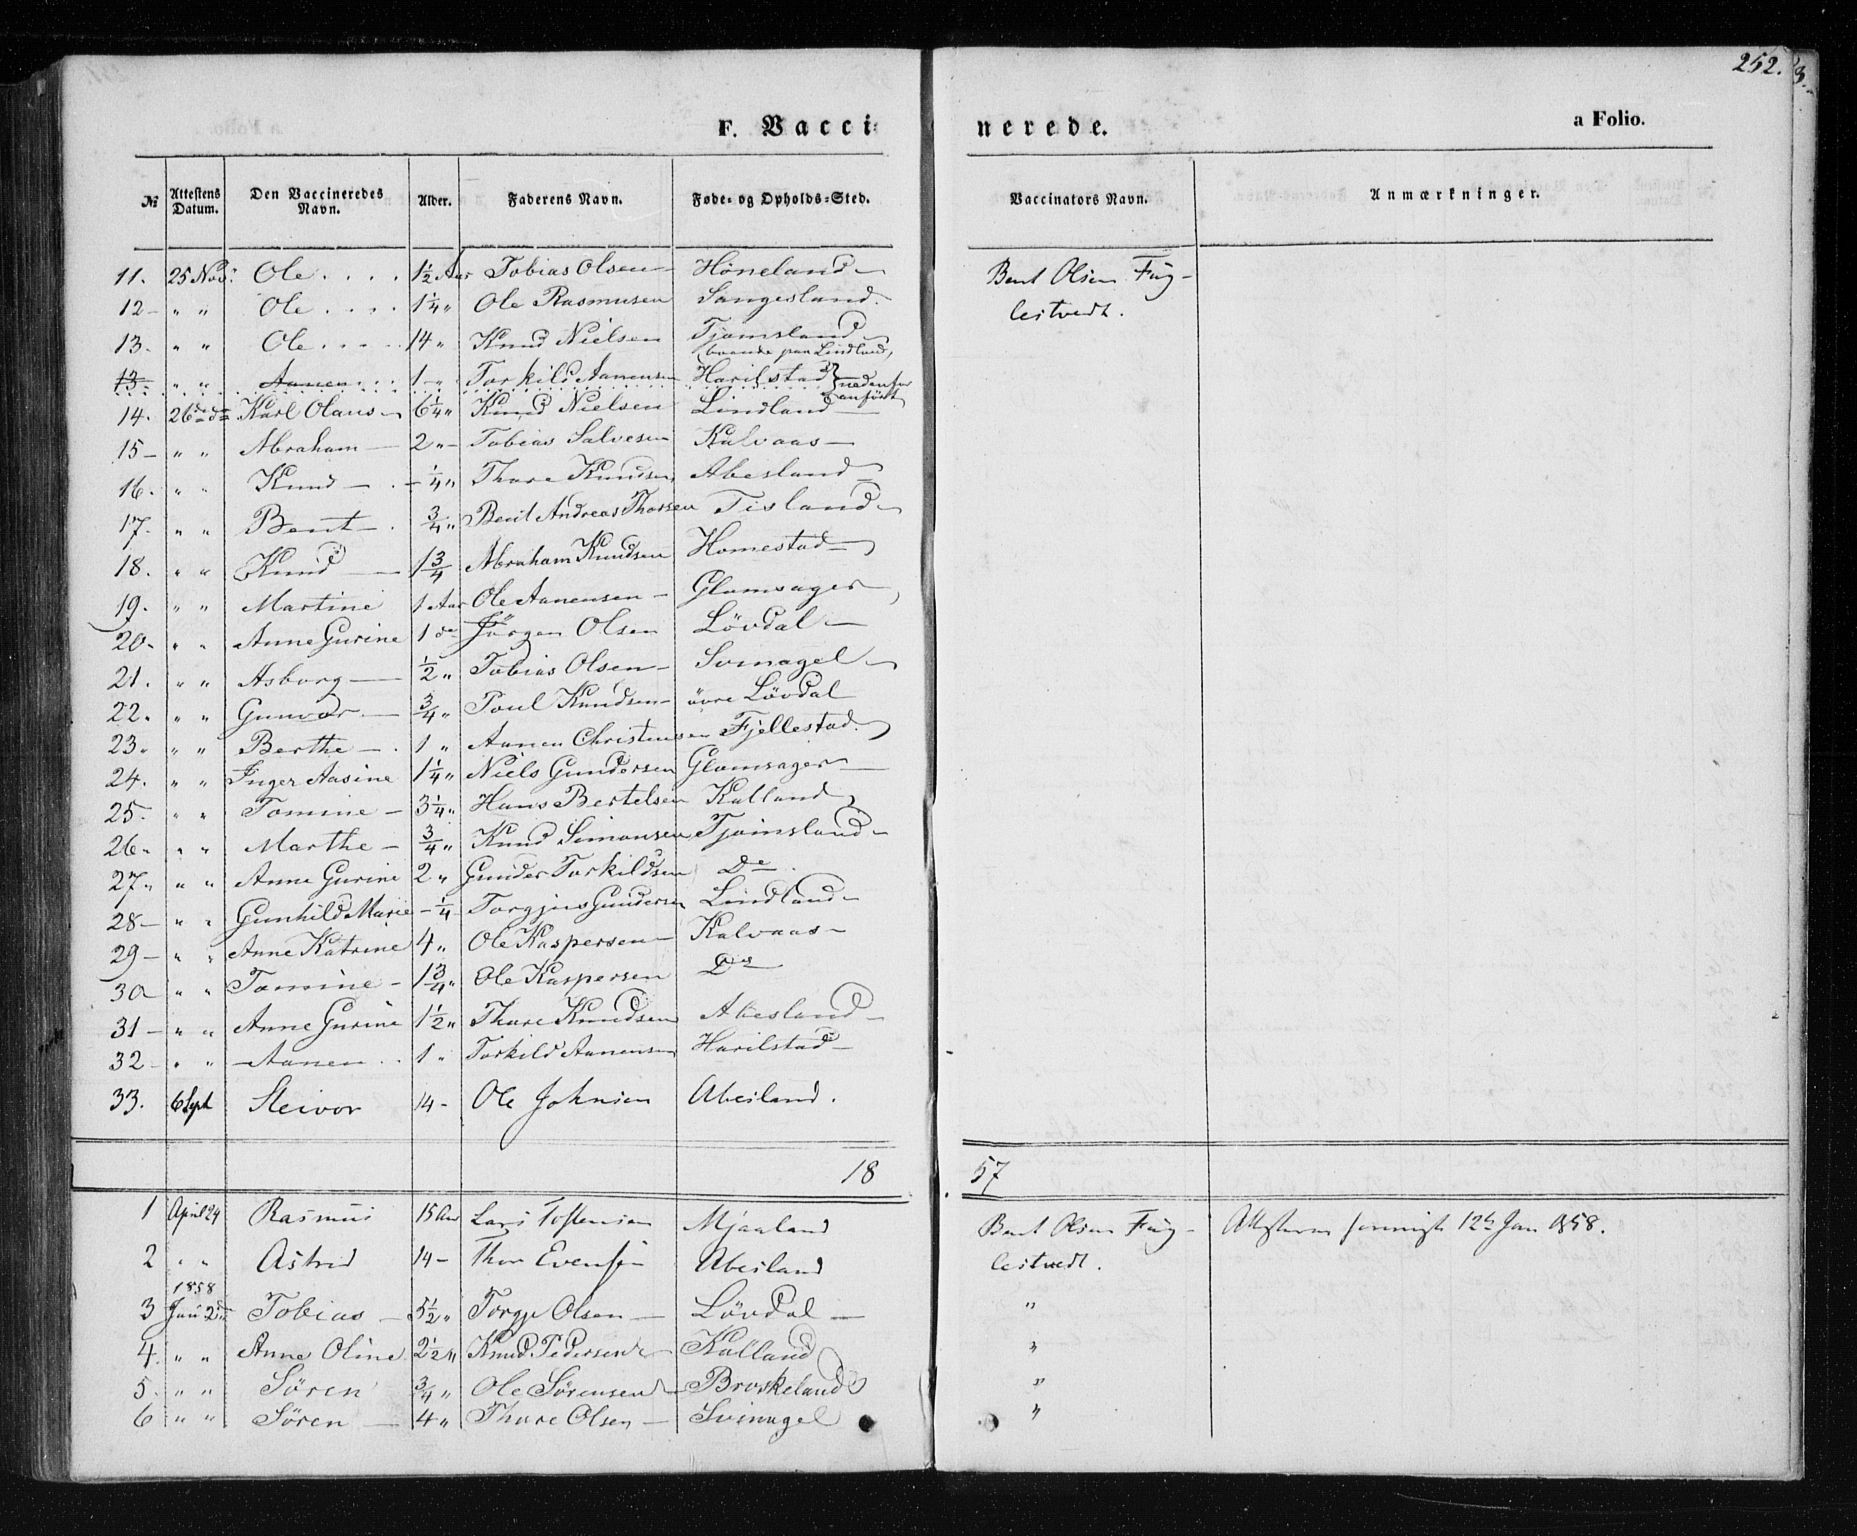 252.
F. Vacci-
nerede.
a Folio.
№ Attestens Datum. Den Vaccineredes Navn. Alder. Faderens Navn. Føde- og Opholds-Sted. Vaccinators Navn. Anmærkninger.
11. 25 Nov: Ole 1½ Aar Tobias Olsen Høneland Bent Olsen Fug-
12 " " Ole 1¼ " Ole Rasmusen Sangesland lestvedt.
13. " " Ole 14 " Knud Nielsen Tjomsland
boende paa Lindland,
13. " " Aanen 1 " Torkild Aanensen Harilstad nedenfor
anført
14. 26de do Karl Olaus 6¼ " Knud Nielsen Lindland
15 " " Abraham 2 " Tobias Salvesen Kalvaas
16. " " Knud ¼ " Thore Knudsen Abesland
17. " " Bent ¾ " Berit Andreas Thorsen Tisland
18. " " Knud 1¾ Abraham Knudsen Homestad
19. " " Martine 1 Aar Ole Aanensen Glomsager
20. " " Anne Gurine 1 do Jörgen Olsen Lövdal
21. " " Asborg ½ " Tobias Olsen Svinagel
22. " " Gunvor ¾ " Poul Knudsen övre Lövdal
23. " " Berthe 1 " Aanen Christensen Fjellestad
24. " " Inger Aasine 1¼ " Niels Gundersen Glomsager
25. " " Tomine 3¼ " Hans Bertelsen Kalland
26. " " Marthe ¾ " Knud Simonsen Tjomsland
27. " " Anne Gurine 2 " Gunder Torkildsen Do
28 " " Gunhild Marie ¼ Torgjus Gundersen Lindland
29 " " Anne Katrine 4 " Ole Kaspersen Kalvaas
30 " " Tomine 1¾ " Ole Kaspersen Do
31 " " Anne Gurine 1½ " Thore Knudsen Abesland
32 " " Aanen 1 " Torkild Aanensen Harilstad
33. 6 Sept Steivor 14 Ole Johnsen Abesland.
18 57
1 April 24 Rasmus 15 Aar Lars Tostensen Mjaaland Bent Olsen Fug- Attesterne 12te Jan 1858.
2 " " Astrid 14 Thor Evensen Abesland lestvedt.
1858
3 Jan 2den Tobias 5½ " Torgje Olsen Lövdal "
4. " " Anne Oline 2½ " Knud Pedersen Kalland "
5. " " Søren ¾ " Ole Sørensen Broskeland "
6 " " Søren 4 " Thore Olsen Svinagel "